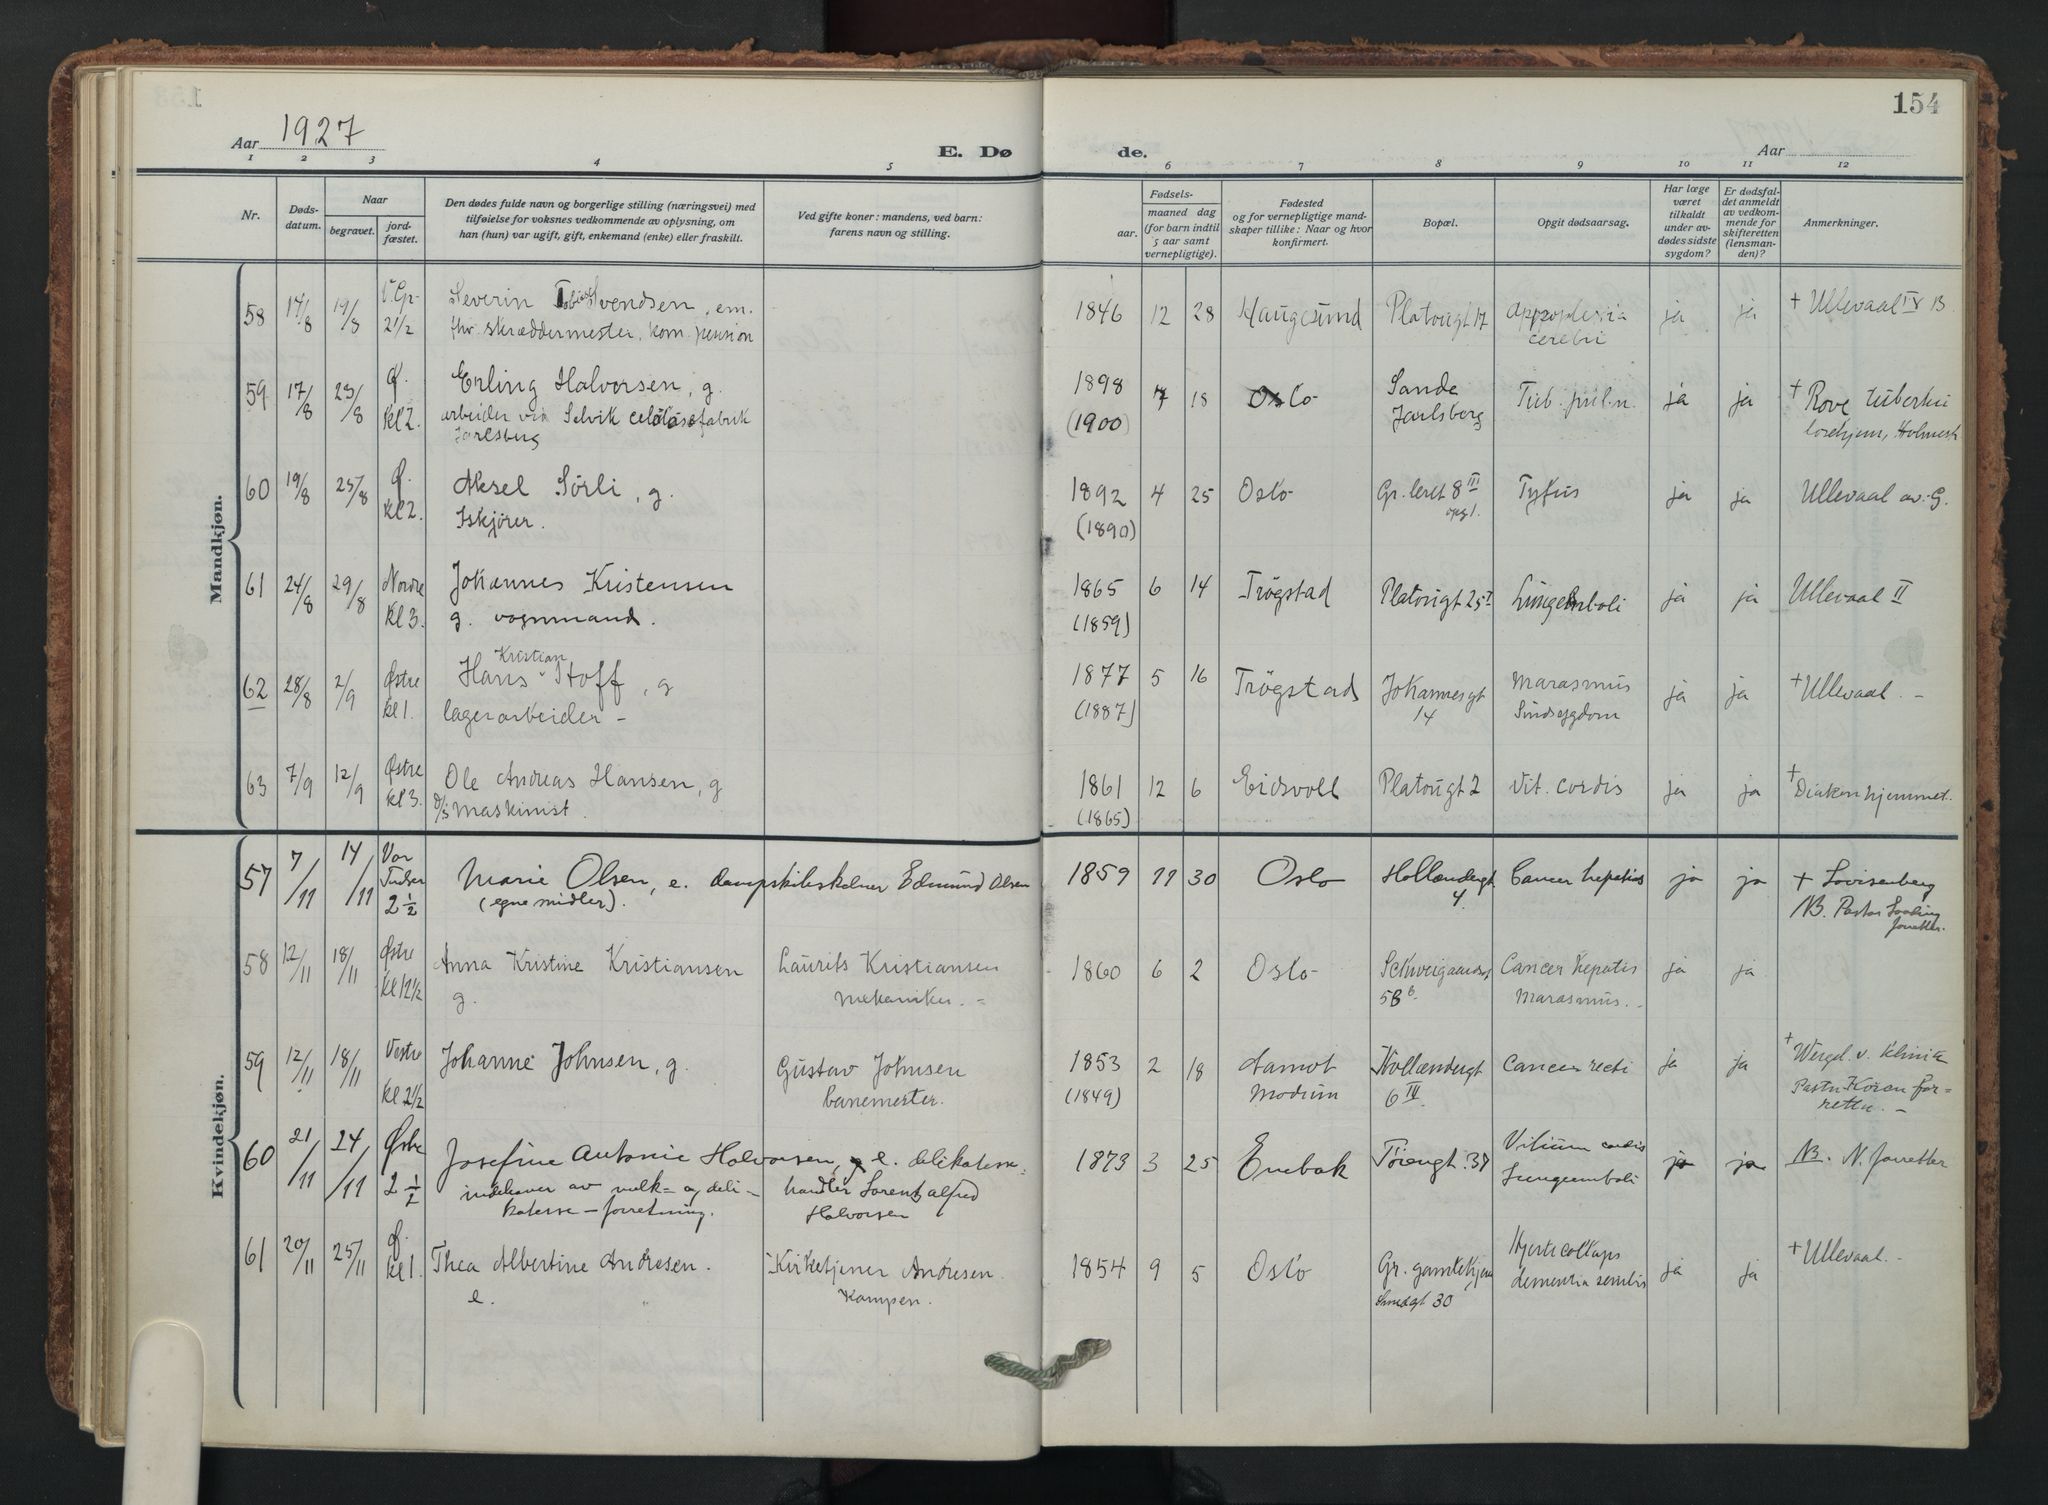 154
Aar 1927
E. Dø
de.
Aar
1 2 3 4 5 6 7 8 9 10 11 12
Nr.
Døds-
datum.
Naar
begravet.
jord-
fæstet.
Den dødes fulde navn og borgerlige stilling (næringsvei) med
tilføielse for voksnes vedkommende av oplysning, om
han (hun) var ugift, gift, enkemand (enke) eller fraskilt.
Ved gifte koner: mandens, ved barn:
farens navn og stilling.
Fødsels-
aar.
maaned dag
(for barn indtil
5 aar samt
vernepligtige).
Fødested
og for vernepligtige mand-
skaper tillike: Naar og hvor
konfirmert.
Bopæl.
Opgit dødsaarsag.
Har læge
været
tilkaldt
under av-
dødes sidste
sygdom?
Er dødsfal-
det anmeldt
av vedkom-
mende for
skifteretten
(lensman-
den)?
Anmerkninger.
Mandkjøn.
58 14/8 19/8 V. Gr- 2 1/2
Severin Tobias Svendsen, em.
fhv. skræddermester, kom. pension
1846 12 28 Haugesund Platougt 17
Appoplexia
cerebri
ja ja + Ullevaal IX B
59 17/8 23/8 Ø. kl 2.
Erling Halvorsen, g.
arbeider ved Selvik celulosefabrik
Jarlsberg
1898
(1900)
7 18 Oslo
Sande
Jarlsberg
Tub. pulm. ja ja
+ Rove tuberku
losehjem, Holmest
60 19/8 25/8 Ø. kl 2.
Aksel Sørli, g.
Iskjører.
1892
(1890)
4 25 Oslo Gr. leret 8 III
opg 1.
Tyfus ja ja Ullevaal av. G.
61 24/8 29/8 Nordre kl 3.
Johannes Kristensen
g. vognmand.
1865
(1859)
6 14 Trøgstad Platougt 25 I Lungemboli ja ja Ullevaal II
62 28/8 2/9 Østre kl 1.
Hans Kristian Hoff, g
lagerarbeider -
1877
(1887)
5 16 Trøgstad Johannesgt
14
Marasmus
Sindsygdom
ja ja + Ullevaal. -
63 7/9 12/9 Østre kl 3.
Ole Andreas Hansen, g
D/S maskinist.
1861
(1865)
12 6 Eidsvoll Platougt 2 Vit. cordis ja ja + Diakonhjemmet.
Kvindekjøn.
57 7/11 14/11 Vor 2 1/2
Marie Olsen, e. dampskibskelner Edmund Olsen
(egne midler).
1859 11 30 Oslo Hollændergt
4.
Cancer hepatis ja ja + Lovisenberg
NB. Pastor
forretter.
58 12/11 18/11 Østre kl 12 1/2
Anna Kristine Kristiansen
g.
Laurits Kristiansen
mekaniker. -
1860 6 2 Oslo Schweigaardsgt
58 b.
Cancer hepatis
Marasmus. -
ja ja
59 12/11 18/11 Vestre kl 2 1/2
Johanne Johnsen, g.
Gustav Johnsen
banemester.
1853
(1849)
2 18 Aamot
Modum
Hollændergt
6 IV.
Cancer recti ja ja
+ Wergel. v. klinik
Pastor Koren for-
retter. -
60 21/11 24/11 Østre 2 1/2
Josefine Antonie Halvorsen, e. delikatesse-
indehaver av melk- og deli-
katesse-forretning.
handler Lorentz Alfred
Halvorsen
1873 3 25 Enebak Tøiengt. 37
Vitium cordis
Lungeemboli
ja ja NB. N. forretter
61 20/11 25/11 Ø. kl 1.
Thea Albertine Andresen.
e.
Kirketjener Andresen.
Kampen.
1854 9 5 Oslo Gr. gamlehjem
Smedgt 30
Hjertecollaps
dementia senilis
ja ja + Ullevaal. -